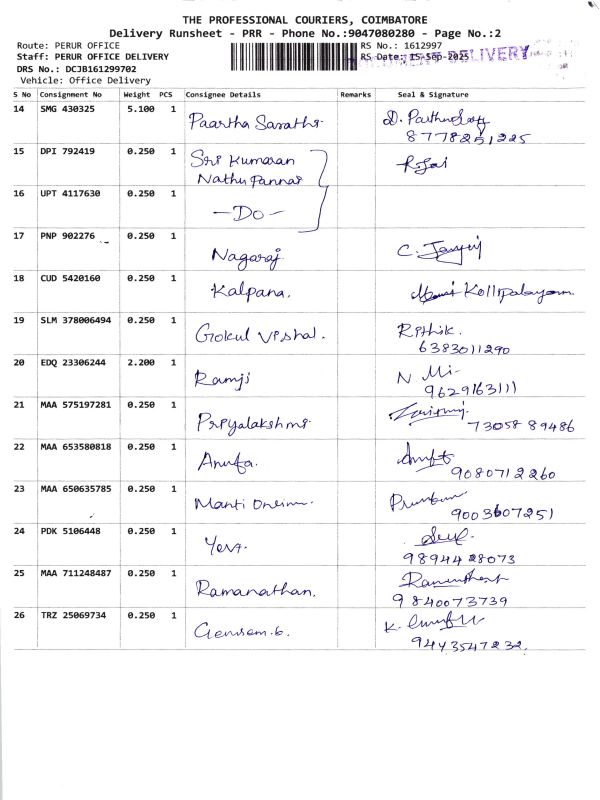 THE PROFESSIONAL COURIERS, COIMBATORE
Delivery Runsheet - PRR - Phone No.:9047080280 - Page No.:2
Route: PERUR OFFICE
RS No.: 1612997
Staff: PERUR OFFICE DELIVERY
RS Date: 15-Sep-2025
DELIVERY
DRS No.: DCJB161299702
Vehicle: Office Delivery
S No Consignment No Weight PCS Consignee Details Remarks Seal & Signature
14 SMG 430325 5.100 1 Paartha Sarathi
8778251225
15 DPI 792419 0.250 1 Sri Kumaran
Nathu Pannai
16 UPT 4117630 0.250 1 -Do-
17 PNP 902276 0.250 1 Nagaraj
18 CUD 5420160 0.250 1 Kalpana. Kollpalayam
19 SLM 378006494 0.250 1 Gokul Vishal. Rithik.
6383011290
20 EDQ 23306244 2.200 1 Ramji
9629163111
21 MAA 575197281 0.250 1 Priyalakshmi
73058 89486
22 MAA 653580818 0.250 1
9080712260
23 MAA 650635785 0.250 1
9003607251
24 PDK 5106448 0.250 1
9894428073
25 MAA 711248487 0.250 1 Ramanathan.
9840073739
26 TRZ 25069734 0.250 1
9443547232.